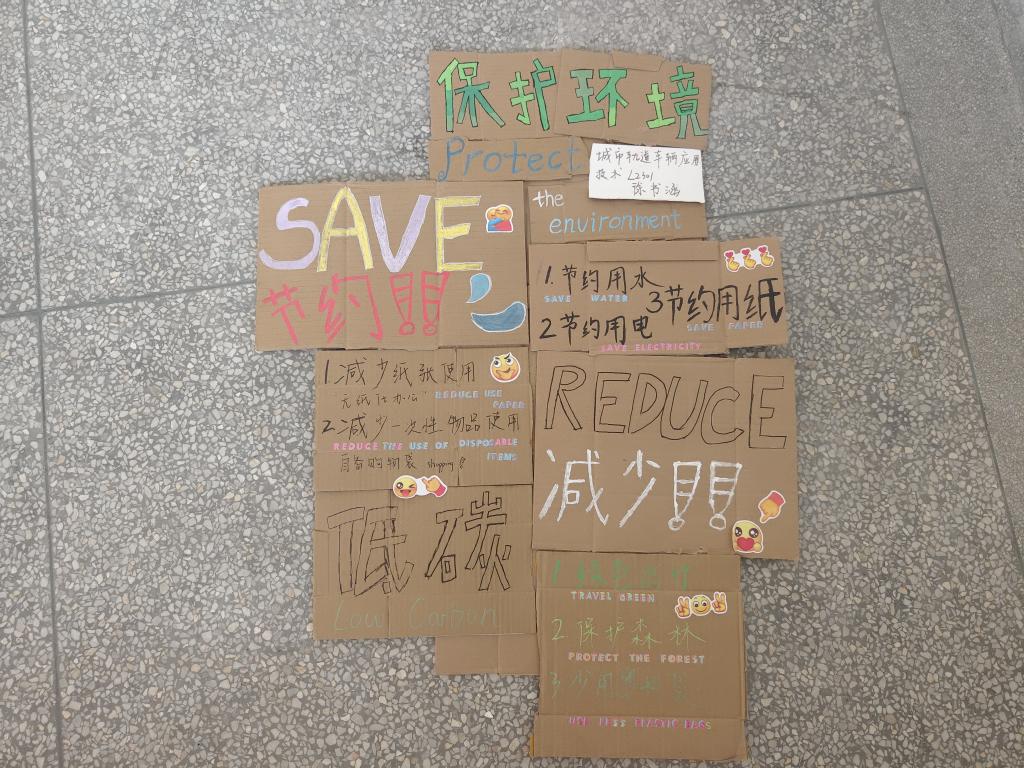 保护环境
Protect
城市轨道车辆应用
技术 L2301
陈书涵
the
environment
SAVE
节约!!!
1.节约用水
SAVE WATER
2节约用电
SAVE ELECTRICITY
3节约用纸
SAVE PAPER
1.减少纸张使用
REDUCE USE
PAPER
"无纸化办公"
2.减少一次性物品使用
REDUCE THE USE OF DISPOSABLE
ITEMS
自备购物袋 shopping
REDUCE
减少!!!
低碳
Low Carbon
1绿色出行
TRAVEL GREEN
2保护森林
PROTECT THE FOREST
3.少用塑料袋
USE LESS PLASTIC BAGS